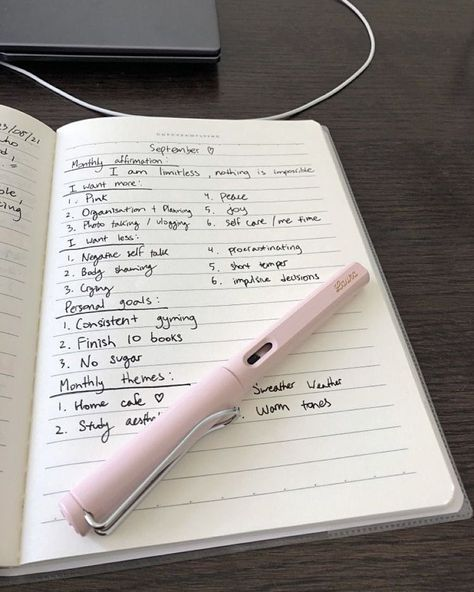 3/08/21
September ♡
Monthly affirmation:
I am limitless, nothing is impossible
I want more:
1. Pink 4. Peace
2. Organisation + Planning 5. Joy
3. Photo taking / vlogging 6. Self care / me time
I want less:
1. Negative self talk 4. procrastinating
2. Body shaming 5. short temper
3. Crying 6. impulsive decisions
Personal goals:
1. Consistent gyming
2. Finish 10 books
3. No sugar
Monthly themes:
1. Home cafe ♡ Sweather Weather
2. Study Warm tones
Laura